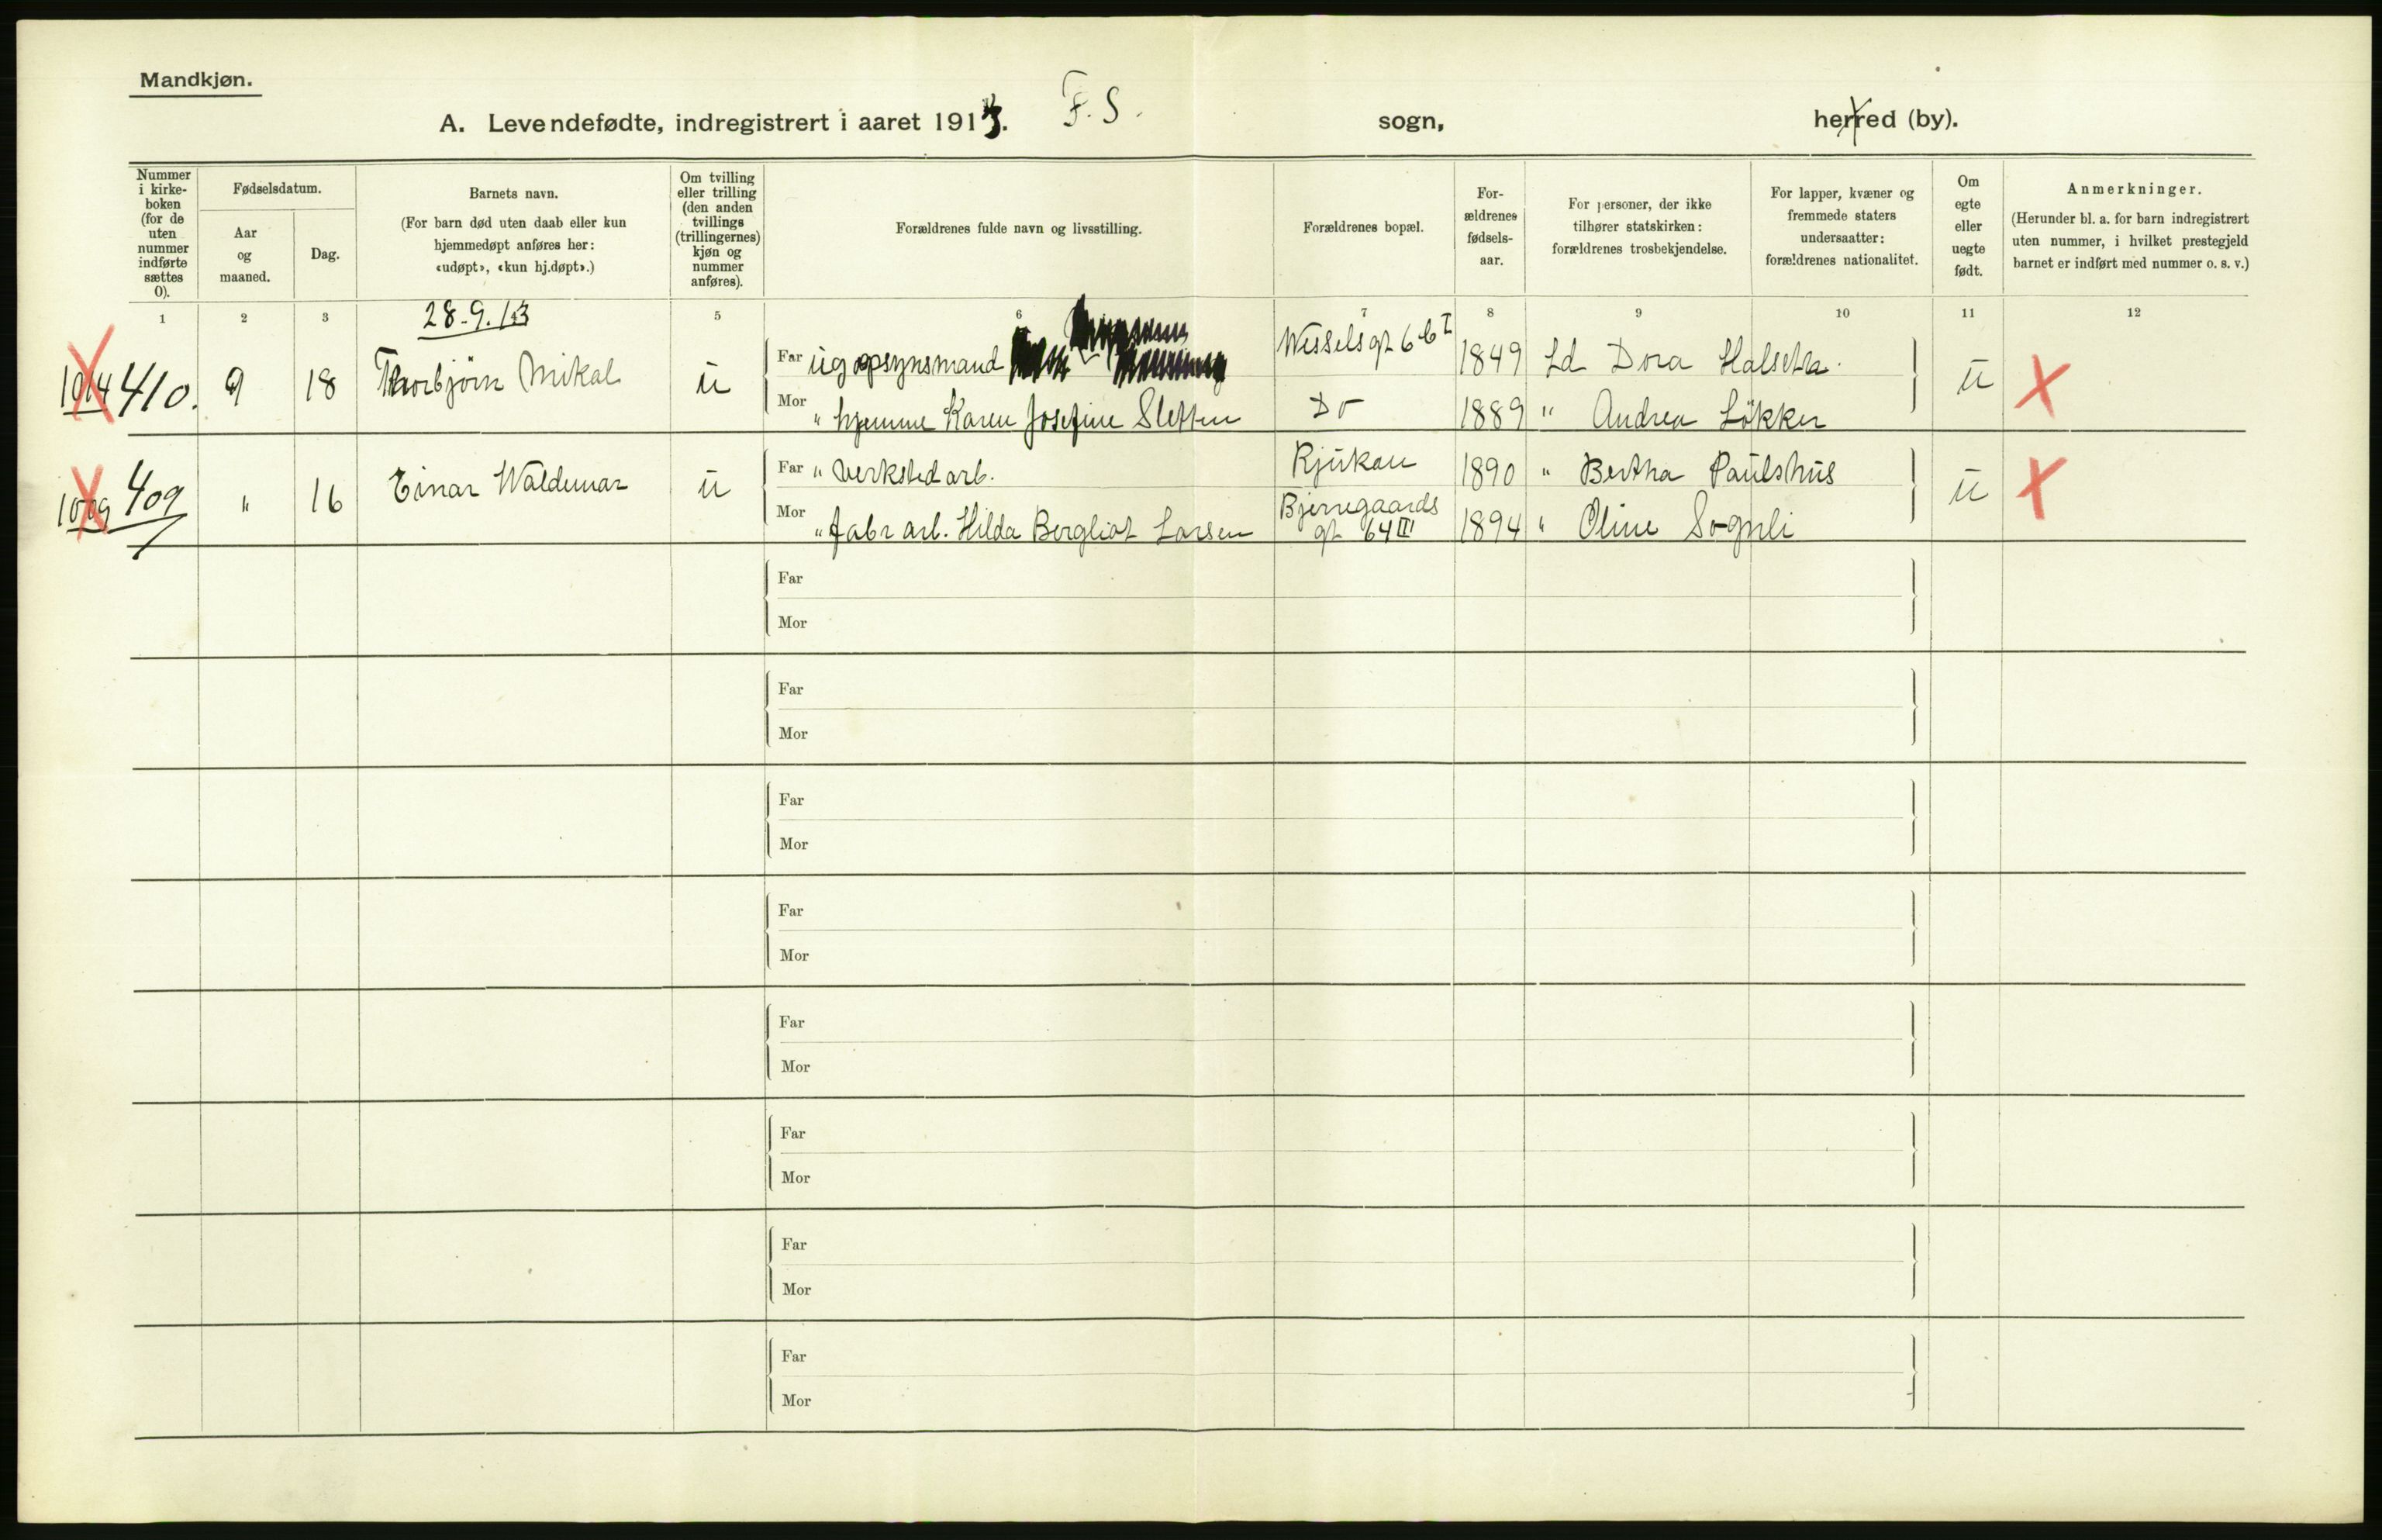 Mandkjøn.
A. Levendefødte, indregistrert i aaret 1913. F. S. sogn, herred (by).
Nummer i kirke-boken (for de uten nummer indførte sættes 0).
Fødselsdatum.
Aar og maaned.
Dag.
Barnets navn.
(For barn død uten daab eller kun hjemmedøpt anføres her: «udøpt», «kun hj.døpt».)
Om tvilling eller trilling (den anden tvillings (trillingernes) kjøn og nummer anføres).
Forældrenes fulde navn og livsstilling.
Forældrenes bopæl.
For-ældrenes fødsels-aar.
For personer, der ikke tilhører statskirken: forældrenes trosbekjendelse.
For lapper, kvæner og fremmede staters undersaatter: forældrenes nationalitet.
Om egte eller uegte født.
Anmerkninger.
(Herunder bl. a. for barn indregistrert uten nummer, i hvilket prestegjeld barnet er indført med nummer o. s. v.)
1 2 3 5 6 7 8 9 10 11 12
28-9.13
1014 410. 9 18 Thorbjörn Mikal u
Far ug opsynsmand Wesselsgt 6b I 1849 Ld Dora Halseth u
Mor " hjemme Karen Josefine Sletten Do 1889 " Andrea Løkker
1009 409 " 16 Einar Waldemar u
Far " verksted arb. Rjukan 1890 " Bertha Paulshus u
Mor " fabr arb. Hilda Bergliot Larsen Bjerregaards gt 64 III 1894 " Oline Sognli
Far
Mor
Far
Mor
Far
Mor
Far
Mor
Far
Mor
Far
Mor
Far
Mor
Far
Mor